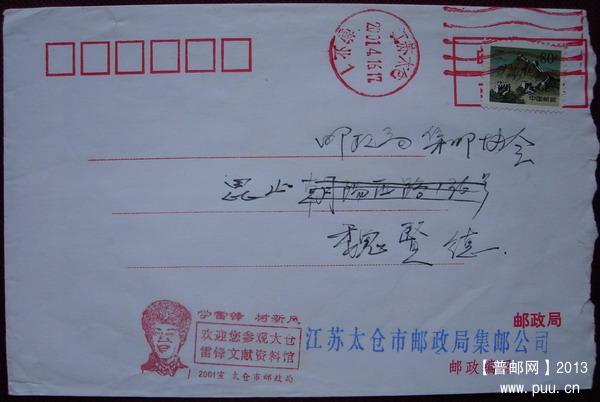 江苏太仓
2001.4.16.17
80
中国邮政
邮政局集邮协会
昆山朝阳西路126号
魏贤德.
学雷锋 树新风
欢迎您参观太仓
雷锋文献资料馆
2001室 太仓市邮政局
邮政局
江苏太仓市邮政局集邮公司
邮政编码
【普邮网】2013
www.puu.cn